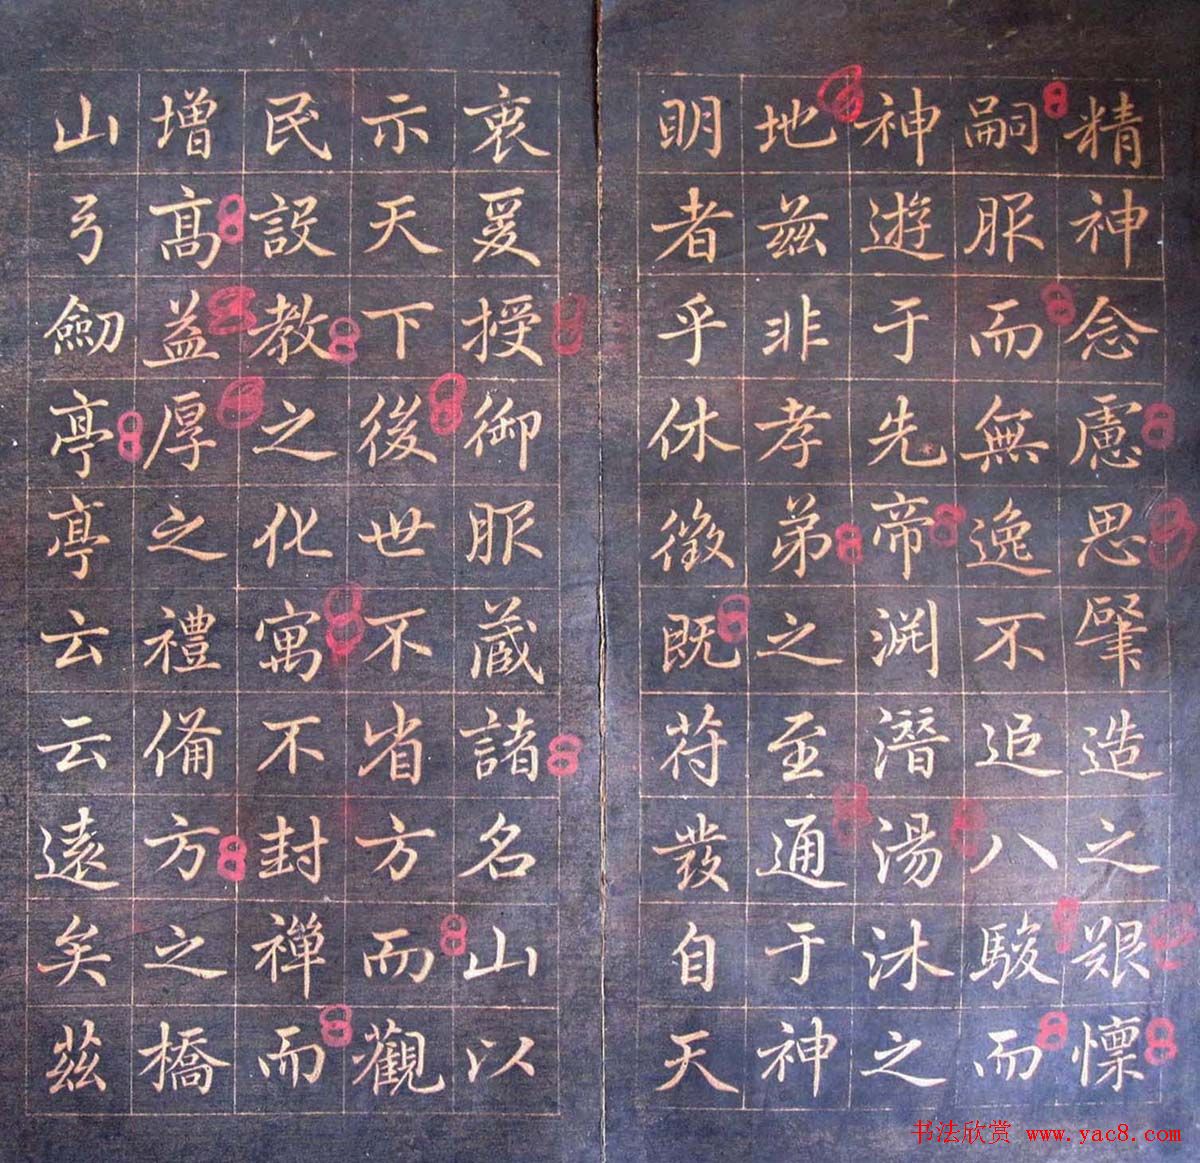 精神念慮思肇造之艱懍
嗣服而無逸不追八駿而
神遊于先帝渊潛湯沐之
地茲非孝弟之至通于神
明者乎休徵既苻發自天
衷爰授御服蔵諸名山以
示天下後世不省方而觀
民設教之化寓不封禪而
增高益厚之禮備方之橋
山弓劒亭亭云云遠矣茲
书法欣赏 www.yac8.com